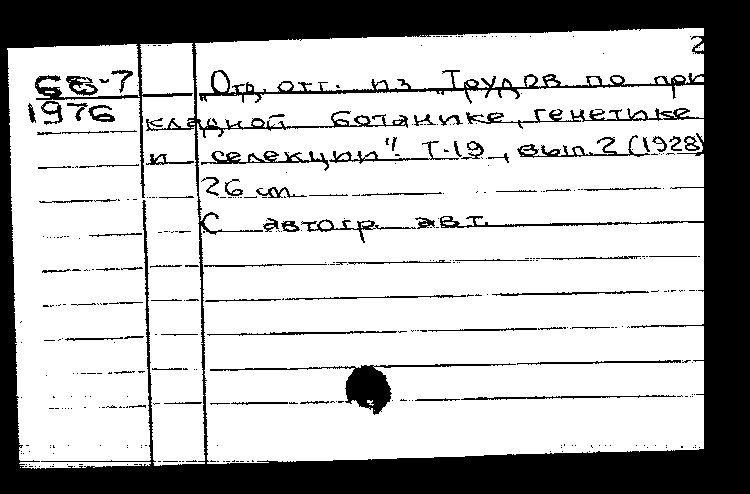 2
68-7
1976
„Отд. отт. из „Трудов по при
кладной ботанике, генетике
и селекции". Т-19, вып. 2 (1928)
26 см.
С автогр. авт.